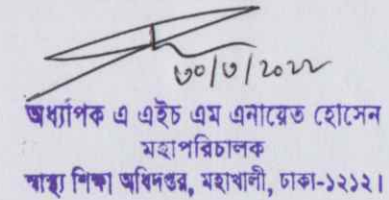 ৩০/৩/২০২২
অধ্যাপক এ এইচ এম এনায়েত হোসেন
মহাপরিচালক
স্বাস্থ্য শিক্ষা অধিদপ্তর, মহাখালী, ঢাকা-১২১২।